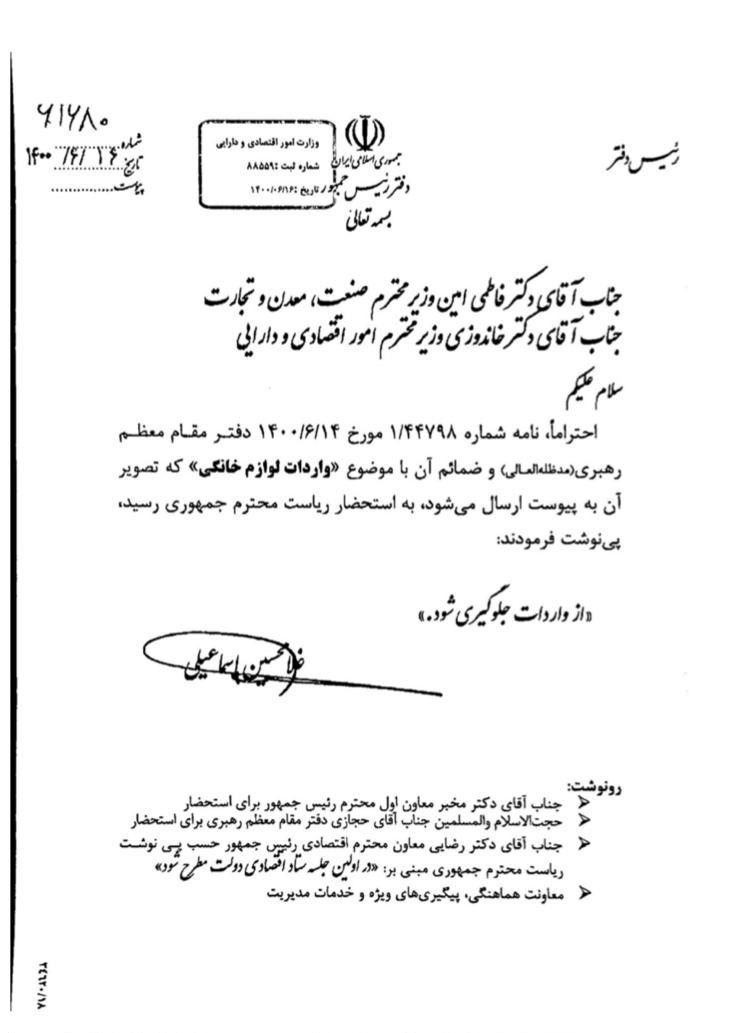 رئیس دفتر
جمهوری اسلامی ایران
دفتر رئیس جمهور
بسمه تعالی
وزارت امور اقتصادی و دارایی
شماره ثبت :۸۸۵۵۹
تاریخ :۱۴۰۰/۰۶/۱۶
۶۱۶۸۰
شماره
تاریخ ۱۴۰۰/۶/۱۶
پیوست
جناب آقای دکتر فاطمی امین وزیر محترم صنعت، معدن و تجارت
جناب آقای دکتر خاندوزی وزیر محترم امور اقتصادی و دارایی
سلام علیکم
احتراماً، نامه شماره ۱/۴۴۷۹۸ مورخ ۱۴۰۰/۶/۱۴ دفتر مقام معظم
رهبری(مدظله‌العالی) و ضمائم آن با موضوع «واردات لوازم خانگی» که تصویر
آن به پیوست ارسال می‌شود، به استحضار ریاست محترم جمهوری رسید،
پی‌نوشت فرمودند:
«از واردات جلوگیری شود.»
غلامحسین اسماعیلی
رونوشت:
جناب آقای دکتر مخبر معاون اول محترم رئیس جمهور برای استحضار
حجت‌الاسلام والمسلمین جناب آقای حجازی دفتر مقام معظم رهبری برای استحضار
جناب آقای دکتر رضایی معاون محترم اقتصادی رئیس جمهور حسب پی نوشت
ریاست محترم جمهوری مبنی بر: «در اولین جلسه ستاد اقتصادی دولت مطرح شود»
معاونت هماهنگی، پیگیری‌های ویژه و خدمات مدیریت